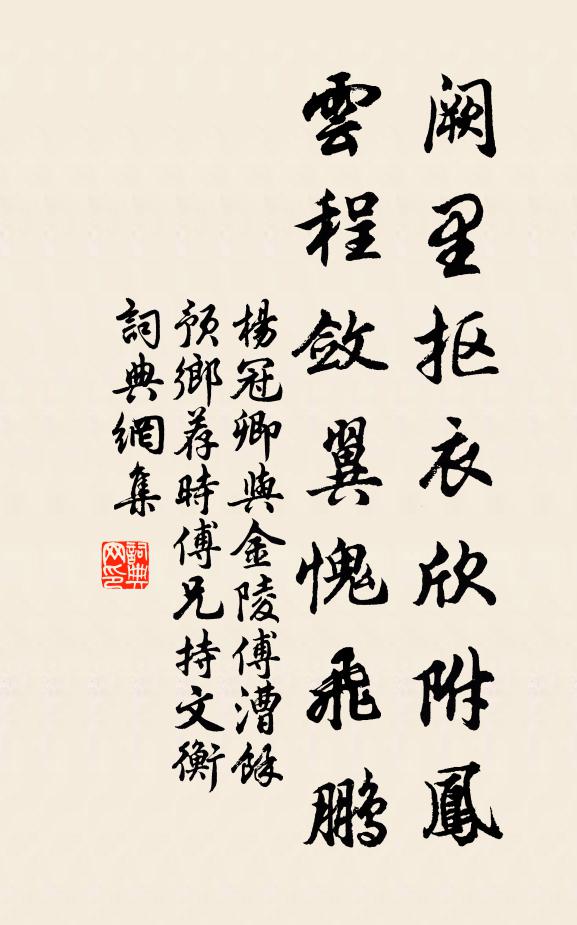 阙里抠衣欣附鳳
雲程敛翼愧飛鵬
楊冠卿與金陵傅漕餘
預鄉荐時傅兄持文衡
詞典網集
詞典网印